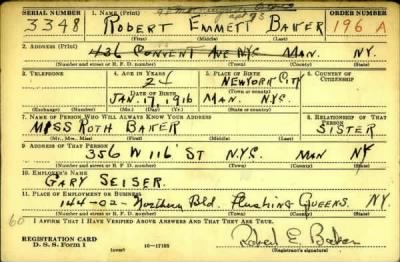 SERIAL NUMBER 1. NAME (Print) ORDER NUMBER
3348 ROBERT EMMETT BAKER 196 A
(First) (Middle) (Last)
2. ADDRESS (Print)
436 CONVENT AVE NYC MAN. NY.
(Number and street or R. F. D. number) (Town) (County) (State)
3. TELEPHONE 4. AGE IN YEARS 5. PLACE OF BIRTH 6. COUNTRY OF CITIZENSHIP
24 NEWYORK CITY
DATE OF BIRTH (Town or county)
JAN. 17, 1916 MAN. NYC.
(Exchange) (Number) (Mo.) (Day) (Yr.) (State or country)
7. NAME OF PERSON WHO WILL ALWAYS KNOW YOUR ADDRESS 8. RELATIONSHIP OF THAT PERSON
MISS RUTH BAKER SISTER
(Mr., Mrs., Miss) (First) (Middle) (Last)
9. ADDRESS OF THAT PERSON
356 W 116' ST N.Y.C. MAN NY
(Number and street or R. F. D. number) (Town) (County) (State)
10. EMPLOYER'S NAME
GARY SEISER.
11. PLACE OF EMPLOYMENT OR BUSINESS
144-02- Northern Bld. Flushing QUEENS. NY.
(Number and street or R. F. D. number) (Town) (County) (State)
60 I AFFIRM THAT I HAVE VERIFIED ABOVE ANSWERS AND THAT THEY ARE TRUE.
REGISTRATION CARD
D. S. S. Form 1 (over) 16-17105
Robert E. Baker
(Registrant's signature)